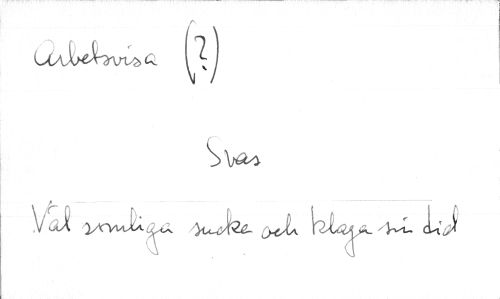 Arbetsvisa (?)
Svas
Väl somliga sucka och klaga sin tid